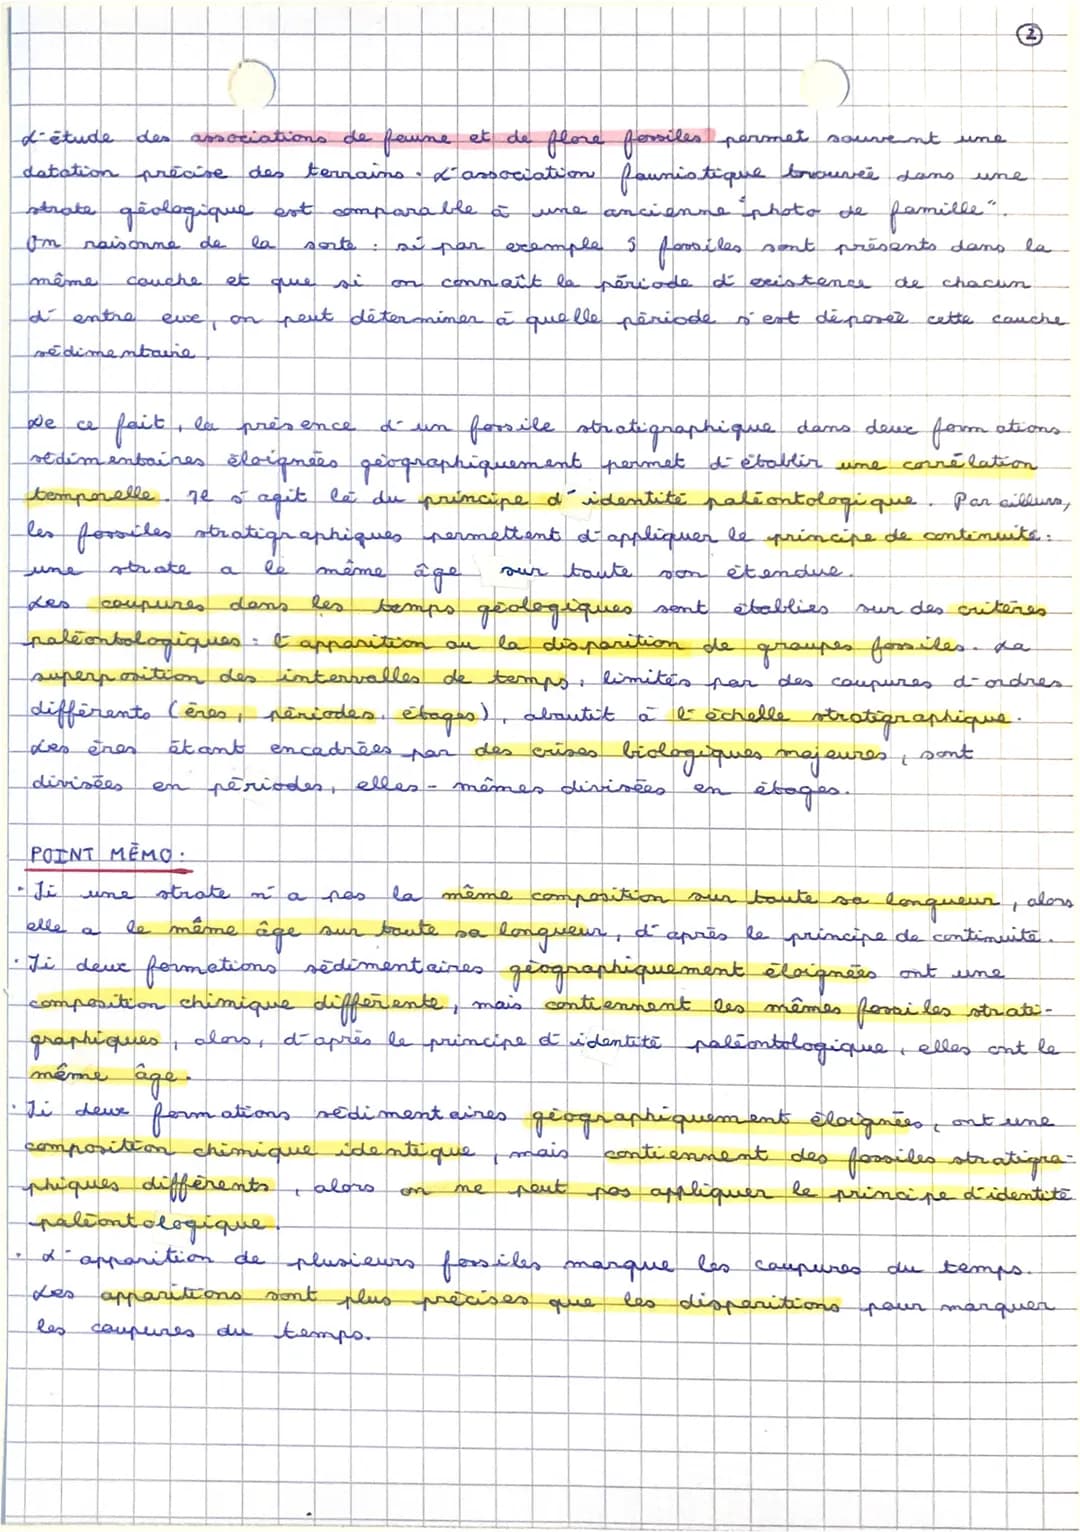 2
L'étude des associations de faune et de flore fossiles permet souvent une
datation précise des terrains. L'association faunistique trouvée dans une
strate géologique est comparable à une ancienne "photo de famille".
On raisonne de la sorte : si par exemple 5 fossiles sont présents dans la
même couche et que si on connaît la période d'existence de chacun
d'entre eux, on peut déterminer à quelle période s'est déposée cette couche
sédimentaire.
De ce fait, la présence d'un fossile stratigraphique dans deux formations
sédimentaires éloignées géographiquement permet d'établir une corrélation
temporelle. Il s'agit là du principe d'identité paléontologique. Par ailleurs,
les fossiles stratigraphiques permettent d'appliquer le principe de continuité :
une strate a le même âge sur toute son étendue.
Les coupures dans les temps géologiques sont établies sur des critères
paléontologiques : l'apparition ou la disparition de groupes fossiles. La
superposition des intervalles de temps, limités par des coupures d'ordres
différents (ères, périodes, étages), aboutit à l'échelle stratigraphique.
Les ères étant encadrées par des crises biologiques majeures, sont
divisées en périodes, elles-mêmes divisées en étages.
POINT MÉMO :
• Si une strate n'a pas la même composition sur toute sa longueur, alors
elle a le même âge sur toute sa longueur, d'après le principe de continuité.
• Si deux formations sédimentaires géographiquement éloignées ont une
composition chimique différente, mais contiennent les mêmes fossiles strati-
graphiques, alors, d'après le principe d'identité paléontologique, elles ont le
même âge.
• Si deux formations sédimentaires géographiquement éloignées, ont une
composition chimique identique, mais contiennent des fossiles stratigra-
phiques différents, alors on ne peut pas appliquer le principe d'identité
paléontologique.
• L'apparition de plusieurs fossiles marque les coupures du temps.
Les apparitions sont plus précises que les disparitions pour marquer
les coupures du temps.